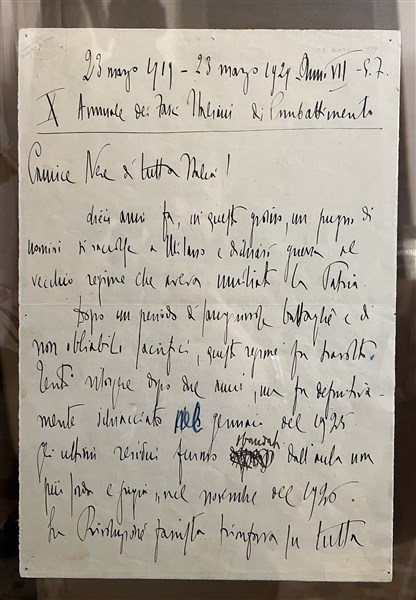 23 marzo 1919 – 23 marzo 1929 – Anno VII – E. F.
X Annuale dei Fasci Italiani di Combattimento
Camicie Nere di tutta Italia!
dieci anni fa, in questo giorno, un pugno di
uomini si raccolse a Milano e dichiarò guerra al
vecchio regime che aveva umiliato la Patria.
Dopo un periodo di sanguinose battaglie e di
non obliabili sacrifici, questo regime fu travolto.
Tentò risorgere dopo due anni, ma fu definitiva-
mente schiacciato nel gennaio del 1925
gli ultimi residui furono sbandati dall'aula
nel novembre del 1926.
La Rivoluzione fascista trionfava su tutta